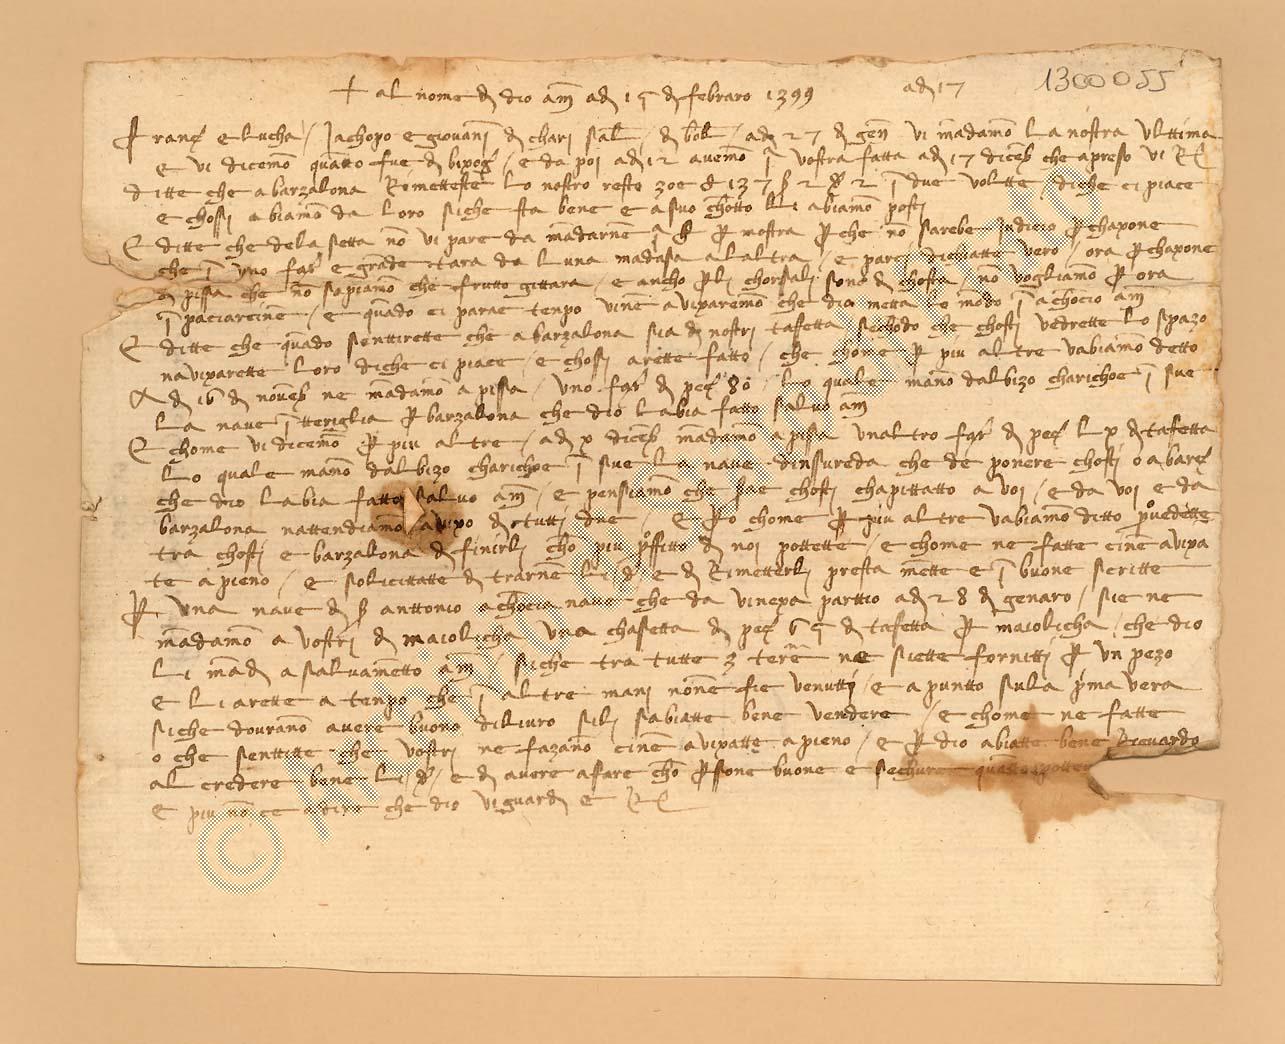 + al nome di dio amē adi 15 di febraro 1399 adi 17
1300055
Franċ e lucha Jachopo e giovanj di charj salī di bōl adi 27 di genō vi mādamō la nostra ulttima
e vi dicemō quātto fue di bixogō e da poi adi 12 avemō j vostra fatta adi 17 diceb che apreso vi R
ditte che a barzalona Rimetteste lo nostro resto zoe 137 β 2 2 j due voltte diche ci piace
e chossi abiamō da loro siche sta bene e a suo chōtto li abiamō posti
E ditte che dela setta nō vi pare da mādarnē p mostra p che nō sarebe judicio p chaxone
che j uno fār e grāde tara da luna madasa alaltra e parci dichatte vero ora p chaxone
di pissa che nō sapiamo che frutto gittara e ancho p li chorsali sono di chosta nō vogliamo p ora
j paciarcine e quādo ci parae tenpo vinē aviparemō che dio metta lo mōdo j achōcio amē
E ditte che quādo senttirette che a barzalona sia di nostri tafetta sechōdo che chosti vedrette lo spazo
navixarette loro diche ci piace e chossi arette fatto che chome p piu altre vabiamo detto
di 16 di noveb ne mādamō a pissa uno fār di peċ 80 lo quale manō dalbizo charichoe j sue
la nave jtteriglia p barzalona che dio labia fatto salvo amē
E chome vi dicemō p piu altre adi x diceb mādamō a pissa unaltro fār di peċ lx di tafetta
lo quale manō dalbizo charichoe j sue la nave dinsureda che de ponere chosti o a barċ
che dio labia fatto salvo amē e pensiamō che sae chosti chapittatto a voi e da voi e da
barzalona nattendiamō avixo di tutti due E p o chome p piu altre vabiamo ditto pvedette
tra chosti e barzalona di finirli chō piu pffitto di noi pottette e chome ne fatte cine avixa
te apieno e solicittatte di trarnē li d e di Rimetterli presta mētte e j buone scritte
P una nave di s anttonio achōcia nave che da vinexa parttio adi 28 di genaro sie ne
mādamō a vostri di maiolicha una chasetta di peċ 65 di tafetta p maiolicha che dio
li mādi a salvamētto amē siche tra tutte 3 terē ne siette fornitti p un pezo
e li arette a tenpo che j altre manj nonē fie venutti e apuntto sula pma vera
siche dovranō avere buono dilivro sili sabiatte bene vendere e chome ne fatte
o che senttitte che vostri ne fazano cinē avixatte apieno e p dio abiatte bene Riguardo
al credere bene li d e di avere affare chō psone buone e sechure quātto potter
E piu nō ce a dire che dio vi guardi e R